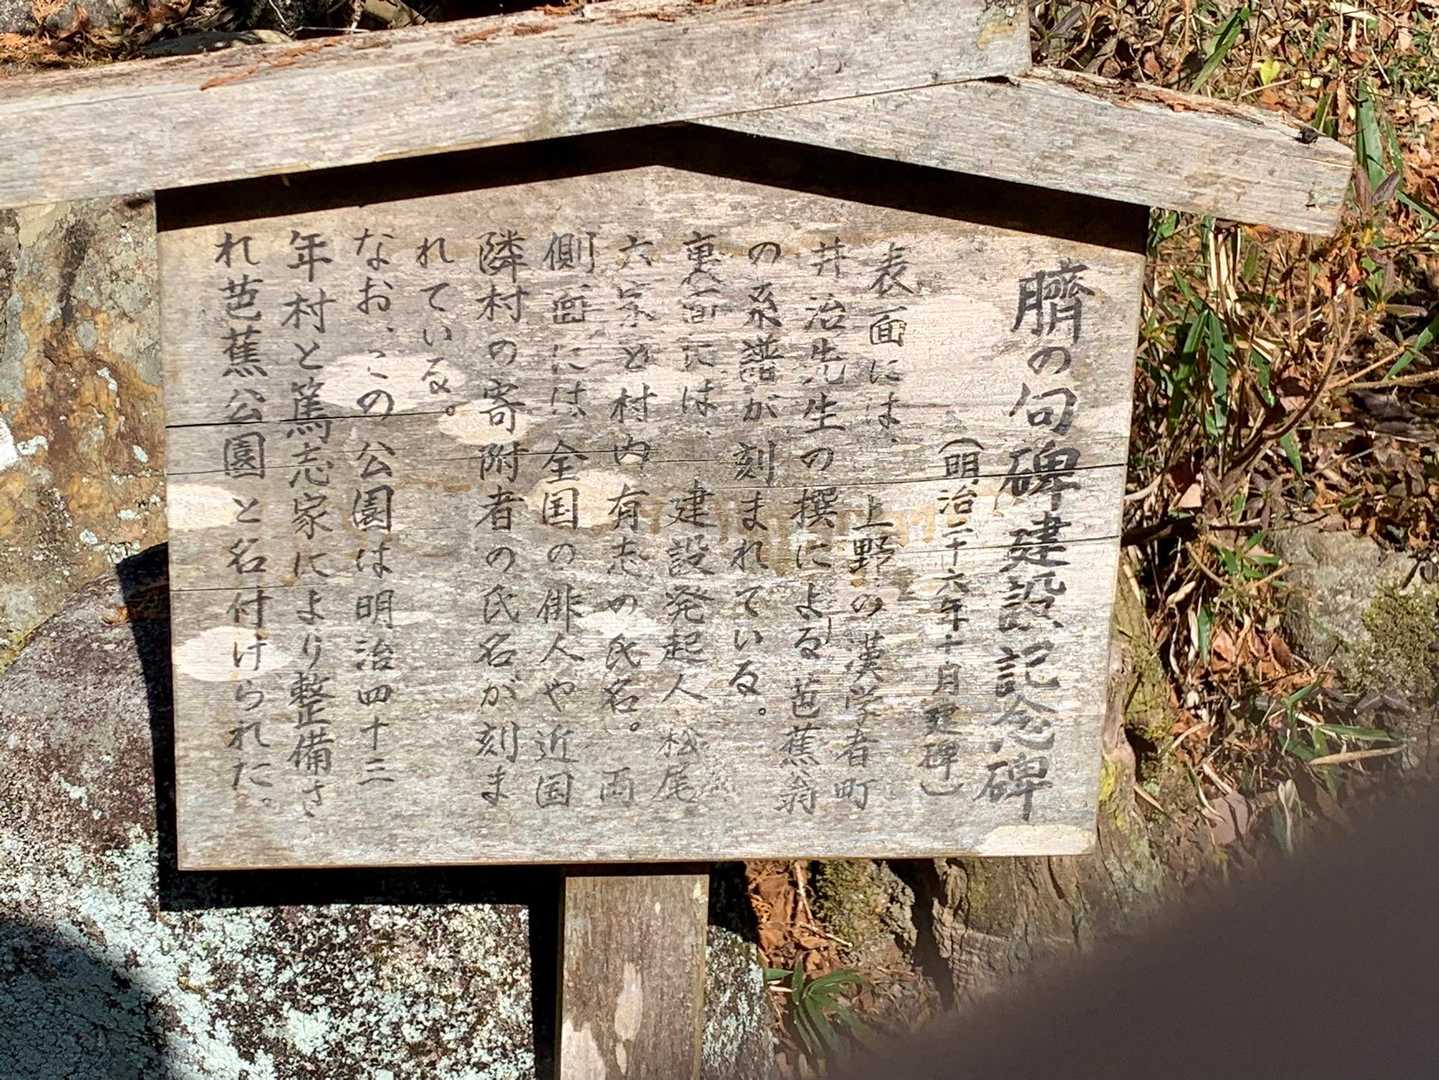 臍の句碑建設記念碑
（明治二十六年十月建碑）
表面には、上野の漢学者町
井治先生の撰による芭蕉翁
の系譜が刻まれている。
裏面には、建設発起人松尾
六家と村内有志の氏名。両
側面には、全国の俳人や近国
隣村の寄附者の氏名が刻ま
れている。
なお、この公園は明治四十三
年村と篤志家により整備さ
れ芭蕉公園と名付けられた。